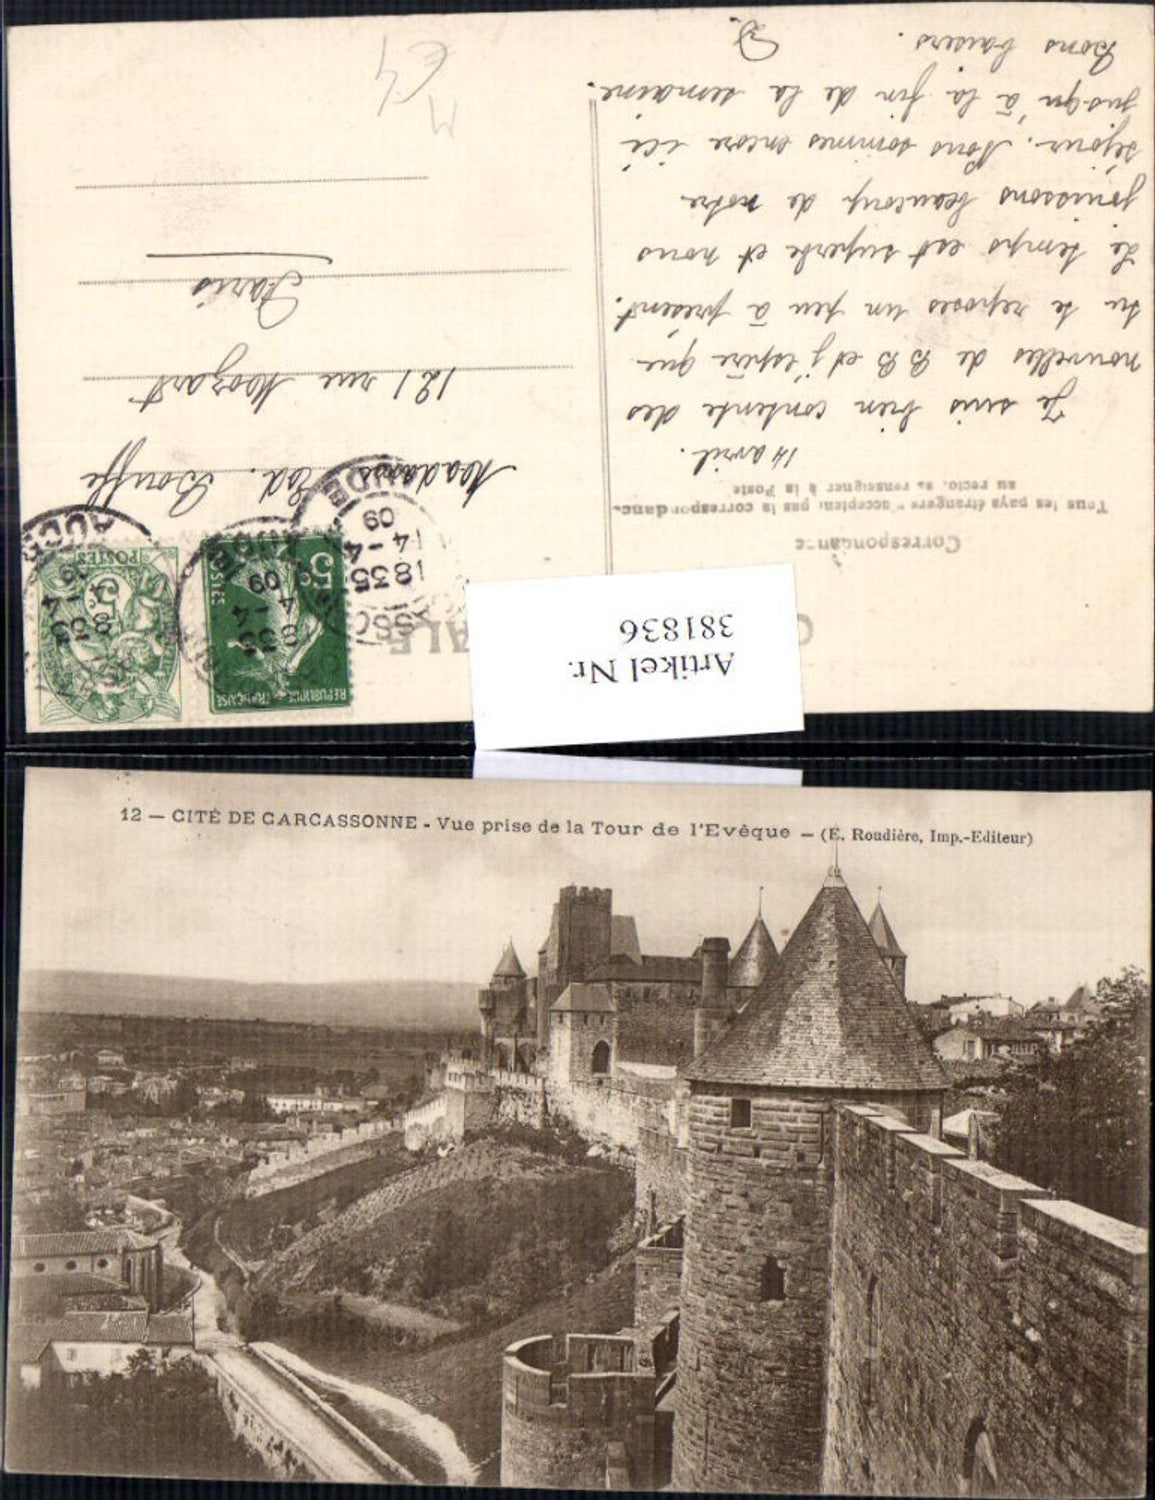 Correspondance
Tous les pays étrangers n'acceptent pas la correspondance
au recto, se renseigner à la Poste
14 avril.
Je suis bien contente des
nouvelles de BB et j'espère que
tu te reposes un peu à présent.
Le temps est superbe et nous
jouissons beaucoup de notre
séjour. Nous sommes encore ici
jusqu'à la fin de la semaine.
Bons baisers.
D.
Artikel Nr.
381836
ALE
RÉPUBLIQUE FRANÇAISE
5c
POSTES
5c
POSTES
AUDE
1835
14-4
09
AUDE
1835
4-4
09
AUDE
Madame Ed. Bouffe
121 rue Mozart
Paris
12 — CITÉ DE CARCASSONNE - Vue prise de la Tour de l'Evêque — (E. Roudière, Imp.-Editeur)